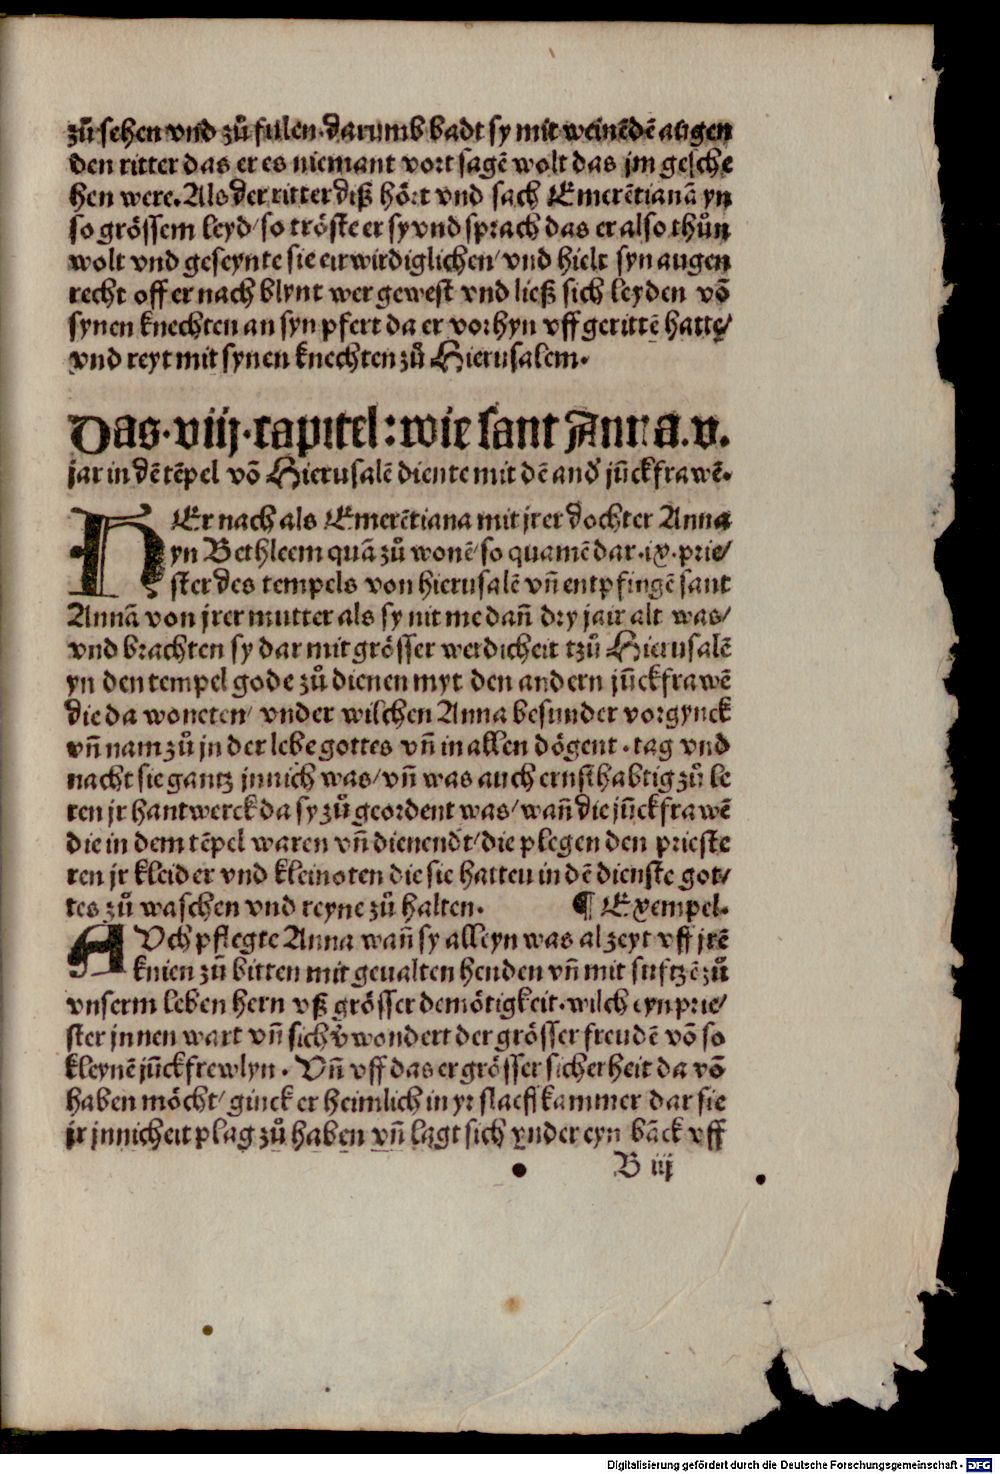 zů sehen vnd zů fulen·darumb badt sy mit weinēdē augen
den ritter das er es niemant vort sagē wolt das jm gesche
hen were. Als der ritter diß hört vnd sach Emerētianā yn
so grössem leyd/ so tröste er sy vnd sprach das er also thůn
wolt vnd geseynte sie eirwirdiglichen/ vnd hielt syn augen
recht off er nach blynt wer gewest vnd ließ sich leyden vō
synen knechten an syn pfert da er vorhyn vff gerittē hatte/
vnd reyt mit synen knechten zů Hierusalem.
Das·viij·capitel: wie sant Anna.v.
jar in dē tēpel vō Hierusalē diente mit dē and̕ jūckfrawē.
HEr nach als Emerētiana mit jrer dochter Anna
yn Bethleem quā zů wonē/ so quamē dar·ix·prie/
ster des tempels von hierusalē vñ entpfingē sant
Annā von jrer mutter als sy nit me dañ dry jair alt was/
vnd brachten sy dar mit grösser werdicheit tzů Hierusalē
yn den tempel gode zů dienen myt den andern jūckfrawē
die da woneten/ vnder wilchen Anna besunder vorgynck
vñ nam zů jn der lebe gottes vñ in allen dögent·tag vnd
nacht sie gantz jnnich was/ vñ was auch ernsthabtig zů le
ren jr hantwerck da sy zů geordent was/ wañ die jūckfrawē
die in dem tēpel waren vñ dienendt/ die plegen den prieste
ren jr kleider vnd kleinoten die sie hatten in dē dienste got/
tes zů waschen vnd reyne zů halten. ¶ Exempel.
AVch pflegte Anna wañ sy alleyn was al zeyt vff jrē
knien zů bitten mit geualten henden vñ mit suftzē zů
vnserm leben hern vß grösser demötigkeit·wilch eyn prie/
ster jnnen wart vñ sich v̕wondert der grösser freudē vō so
kleynē jūckfrewlyn. Vñ vff das er grösser sicherheit da vō
haben möcht/ ginck er heimlich in yr slaeffkammer dar sie
jr jnnicheit plag zů haben vñ lagt sich vnder eyn bāck vff
B iij
Digitalisierung gefördert durch die Deutsche Forschungsgemeinschaft - DFG